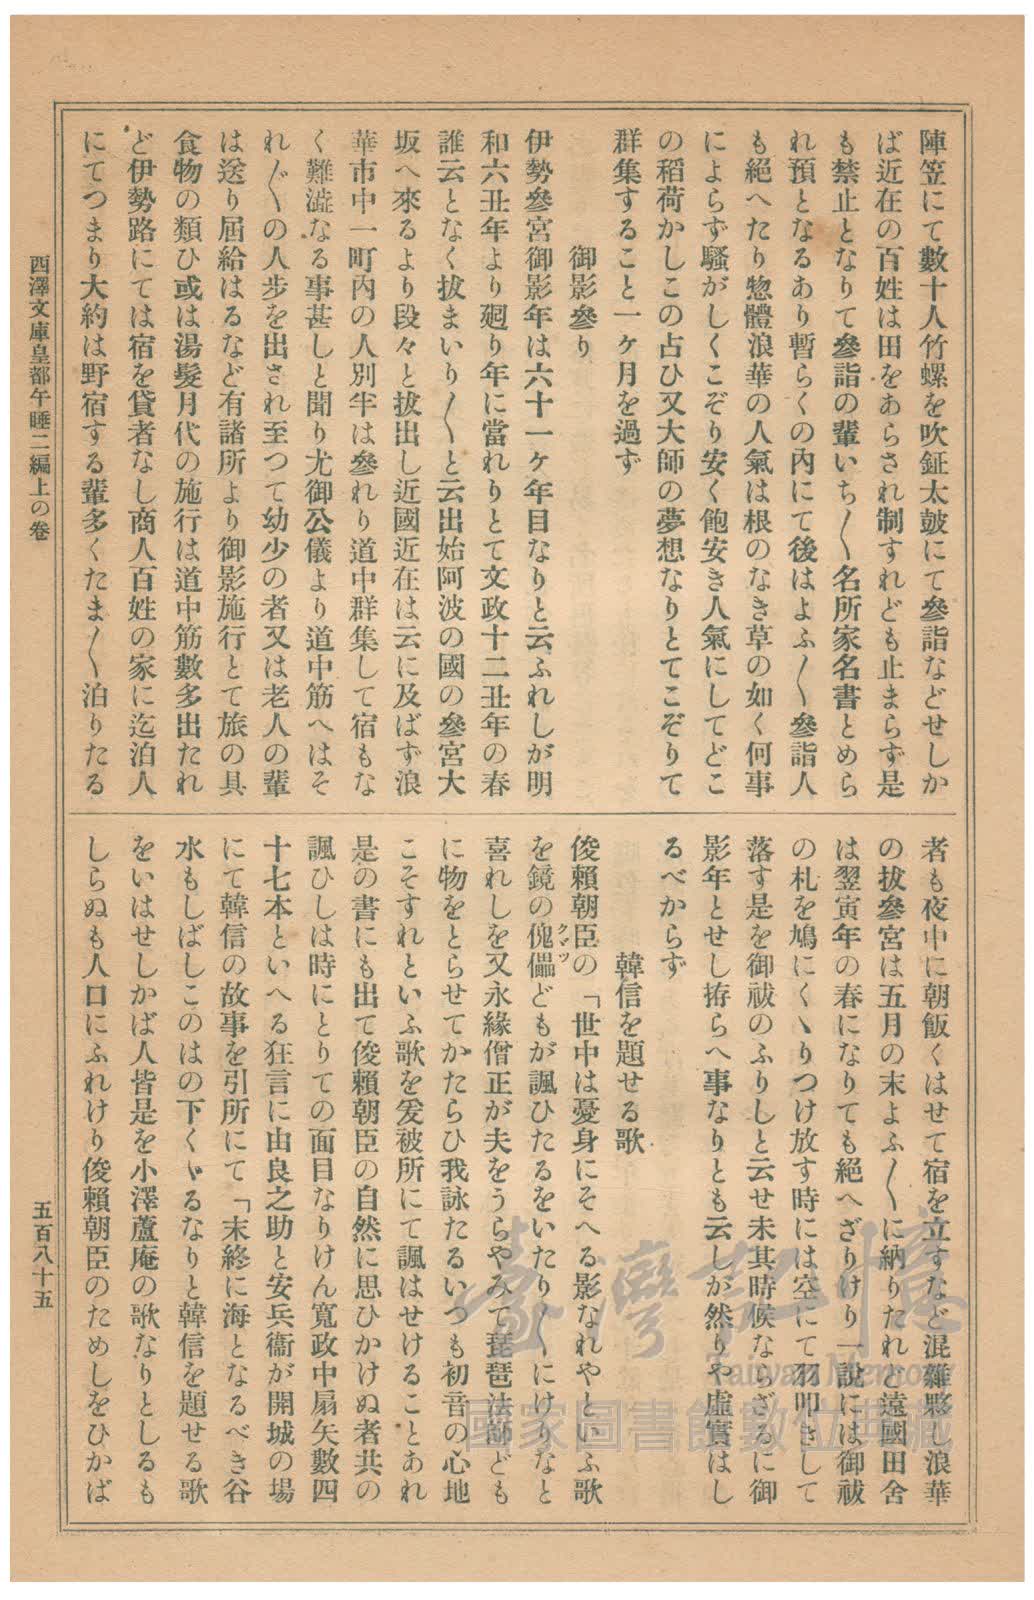 陣笠にて數十人竹螺を吹鉦太皷にて參詣などせしか
ば近在の百姓は田をあらされ制すれども止まらず是
も禁止となりて參詣の輩いち〳〵名所家名書とめら
れ預となるあり暫らくの內にて後はよふ〳〵參詣人
も絕へたり惣體浪華の人氣は根のなき草の如く何事
によらず騷がしくこぞり安く飽安き人氣にしてどこ
の稻荷かしこの占ひ又大師の夢想なりとてこぞりて
群集すること一ヶ月を過ず
御影參り
伊勢參宮御影年は六十一ヶ年目なりと云ふれしが明
和六丑年より廻り年に當れりとて文政十二丑年の春
誰云となく拔まいり〳〵と云出始阿波の國の參宮大
坂へ來るより段々と拔出し近國近在は云に及ばず浪
華市中一町內の人別半は參れり道中群集して宿もな
く難澁なる事甚しと聞り尤御公儀より道中筋へはそ
れ〴〵の人步を出され至つて幼少の者又は老人の輩
は送り屆給はるなど有諸所より御影施行とて旅の具
食物の類ひ或は湯髮月代の施行は道中筋數多出たれ
ど伊勢路にては宿を貸者なし商人百姓の家に迄泊人
にてつまり大約は野宿する輩多くたま〳〵泊りたる
者も夜中に朝飯くはせて宿を立すなど混雜夥し浪華
の拔參宮は五月の末よふ〳〵に納りたれど遠國田舍
は翌寅年の春になりても絕へざりけり一說には御祓
の札を鳩にくゝりつけ放す時には空にて羽叩きして
落す是を御祓のふりしと云せ未其時候ならざるに御
影年とせし拵らへ事なりとも云しが然りや虛實はし
るべからず
韓信を題せる歌
俊賴朝臣の「世中は憂身にそへる影なれやといふ歌
を鏡の傀儡どもが諷ひたるをいたり〳〵にけりなと
クヾツ
喜れしを又永緣僧正が夫をうらやみて琵琶法師ども
に物をとらせてかたらひ我詠たるいつも初音の心地
こそすれといふ歌を爰彼所にて諷はせけることあれ
是の書にも出て俊賴朝臣の自然に思ひかけぬ者共の
諷ひしは時にとりての面目なりけん寬政中扇矢數四
十七本といへる狂言に由良之助と安兵衞が開城の場
にて韓信の故事を引所にて「末終に海となるべき谷
水もしばしこのはの下くゞるなりと韓信を題せる歌
をいはせしかば人皆是を小澤蘆庵の歌なりとしるも
しらぬも人口にふれけり俊賴朝臣のためしをひかば
西澤文庫皇都午睡二編上の卷
五百八十五
臺灣記憶
Taiwan Memory
國家圖書館數位典藏